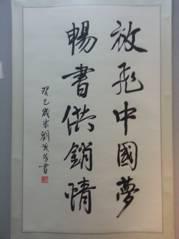 放飛中國夢
暢書供銷情
癸巳歲
劉
書